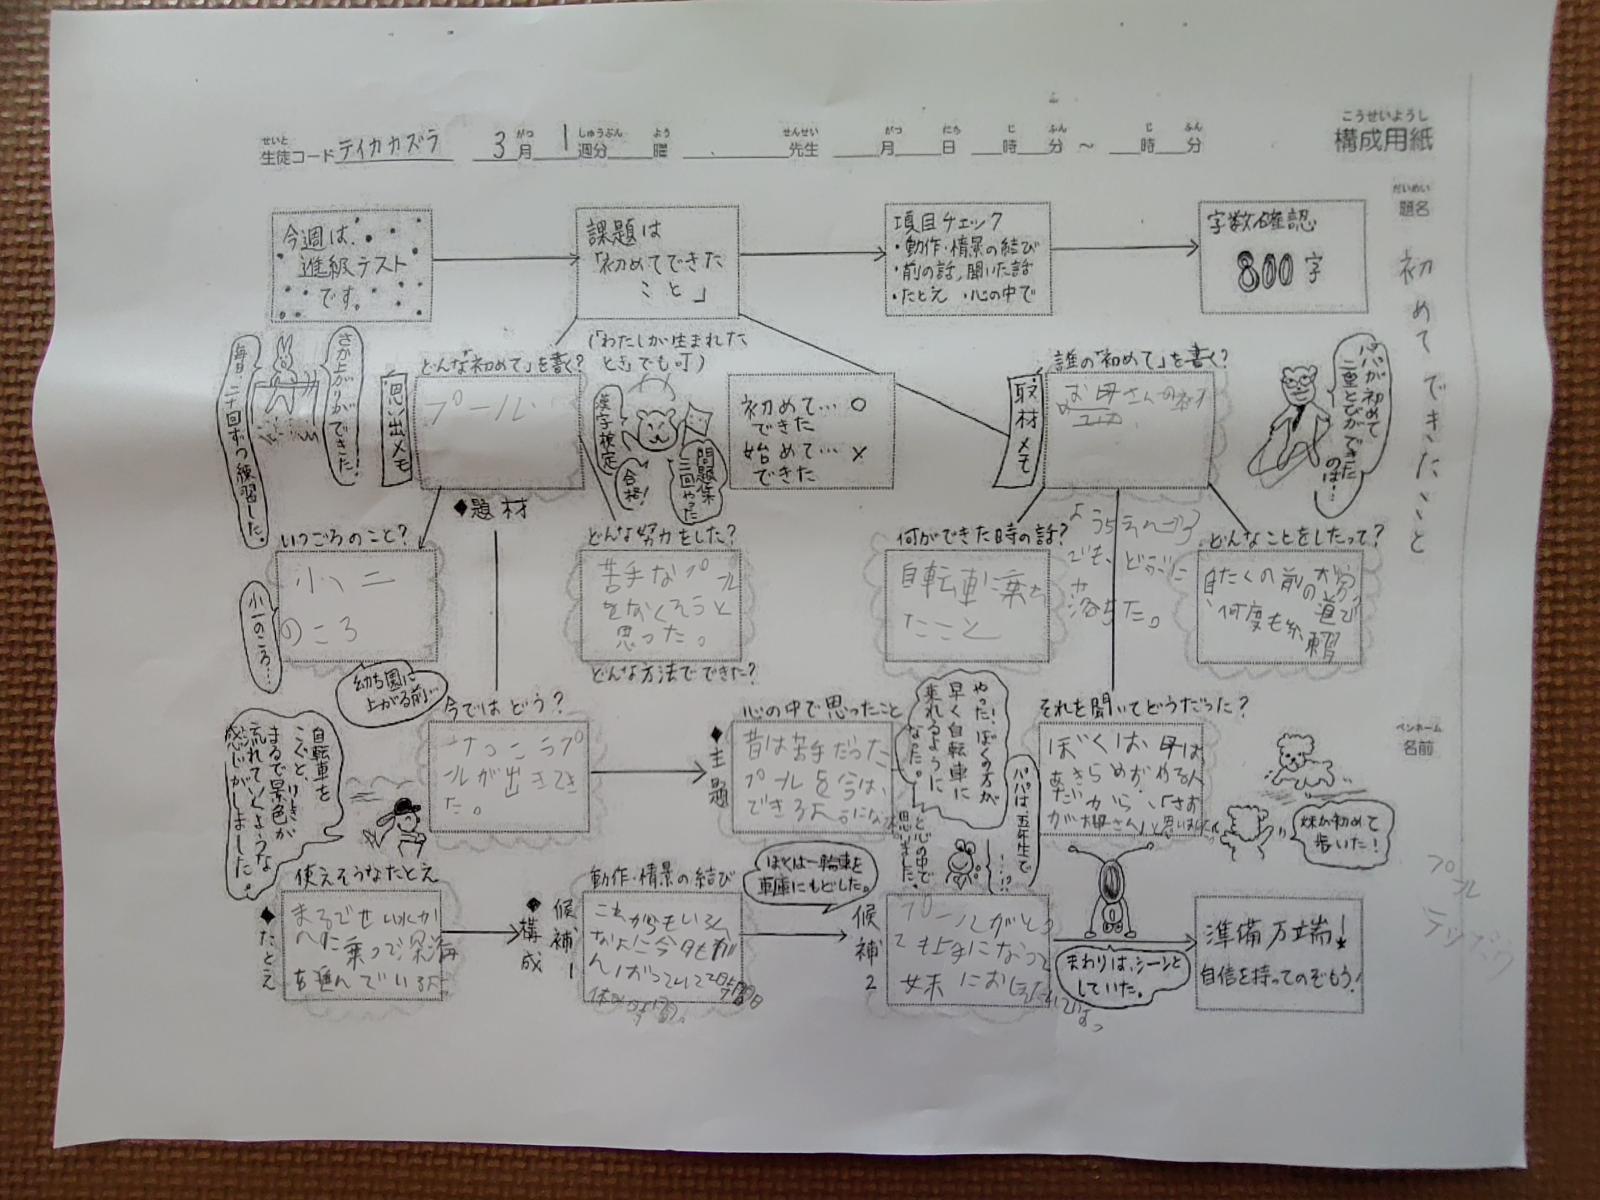 こうせいようし
構成用紙
せいと
生徒コード テイカカズラ
3月 1週分 曜 先生 月 日 時 分 〜 時 分
がつ しゅうぶん よう せんせい がつ にち じ ふん じ ふん
だいめい
題名
初めてできたこと
ペンネーム
名前
今週は、
進級テスト
です。
課題は
「初めてできた
こと」
項目チェック
・動作・情景の結び
・前の話,聞いた話
・たとえ ・心の中で
字数確認
800字
毎日二十回ずつ練習した。
さか上がりができた!
思い出メモ
どんな「初めて」を書く?
プール
(「わたしが生まれた
とき」でも可)
漢字検定
合格!
問題集
三回やった
初めて… ○
できた
始めて… ×
できた
取材メモ
誰の「初めて」を書く?
お母さんの
パパが初めて
二重とびができた
のは…
◆題材
いつごろのこと?
小二
のころ
小一のころ…
幼ち園に
上がる前…
どんな努力をした?
苦手なプール
をなくそうと
思った。
どんな方法でできた?
何ができた時の話?
自転車乗れ
たこと
でも、
落ちた。
どんなことをしたって?
自たくの前の
道で
何度も練習
今ではどう?
けっこうプ
ールが出きてき
た。
◆主題
心の中で思ったこと
昔は苦手だった
プールを今は、
できる
やった!ぼくの方が
早く自転車に
乗れるように
なった。
と心の中で
思いました。
パパは五年生で
……!?
それを聞いてどうだった?
ぼくは、母は
あきらめがやる人
だから、「さす
が母さん」と思いました
妹が初めて
歩いた!
プール
テッパウ
自転車を
こぐと、
まるで景色が
流れていくような
感じがしました。
◆たとえ
使えそうなたとえ
まるでせん水か
んに乗って深海
を進んでいる
◆構成
候補1
動作・情景の結び
これからもいろん
なように今日もが
んばって
ぼくは一輪車を
車庫にもどした。
候補2
プールがとっ
ても上手になって
妹におしえ
まわりは、シーンと
していた。
準備万端!
自信を持ってのぞもう!